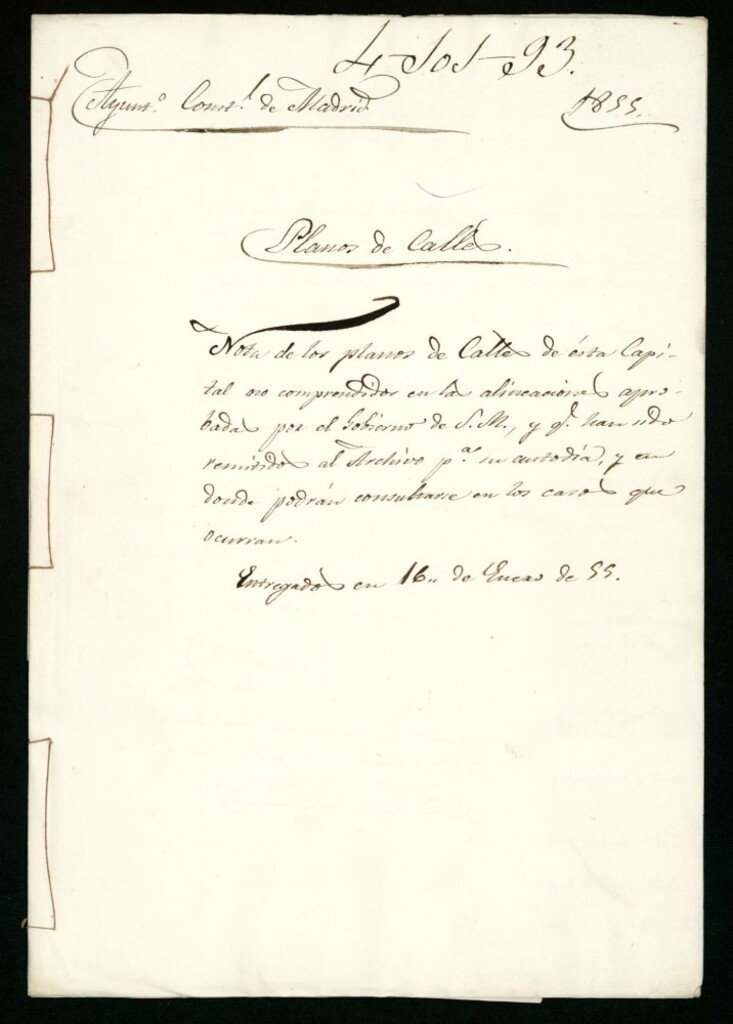 4-101-93.
Ayunt.º Const.l de Madrid
1855.
Planos de Calles.
Nota de los planos de Calles de ésta Capi-
tal no comprendidos en las alineaciones apro-
badas por el Gobierno de S. M., y q.e han sido
remitidos al Archivo p.a su custodia, y en
donde podrán consultarse en los casos que
ocurran.
Entregados en 16,, de Enero de 55.